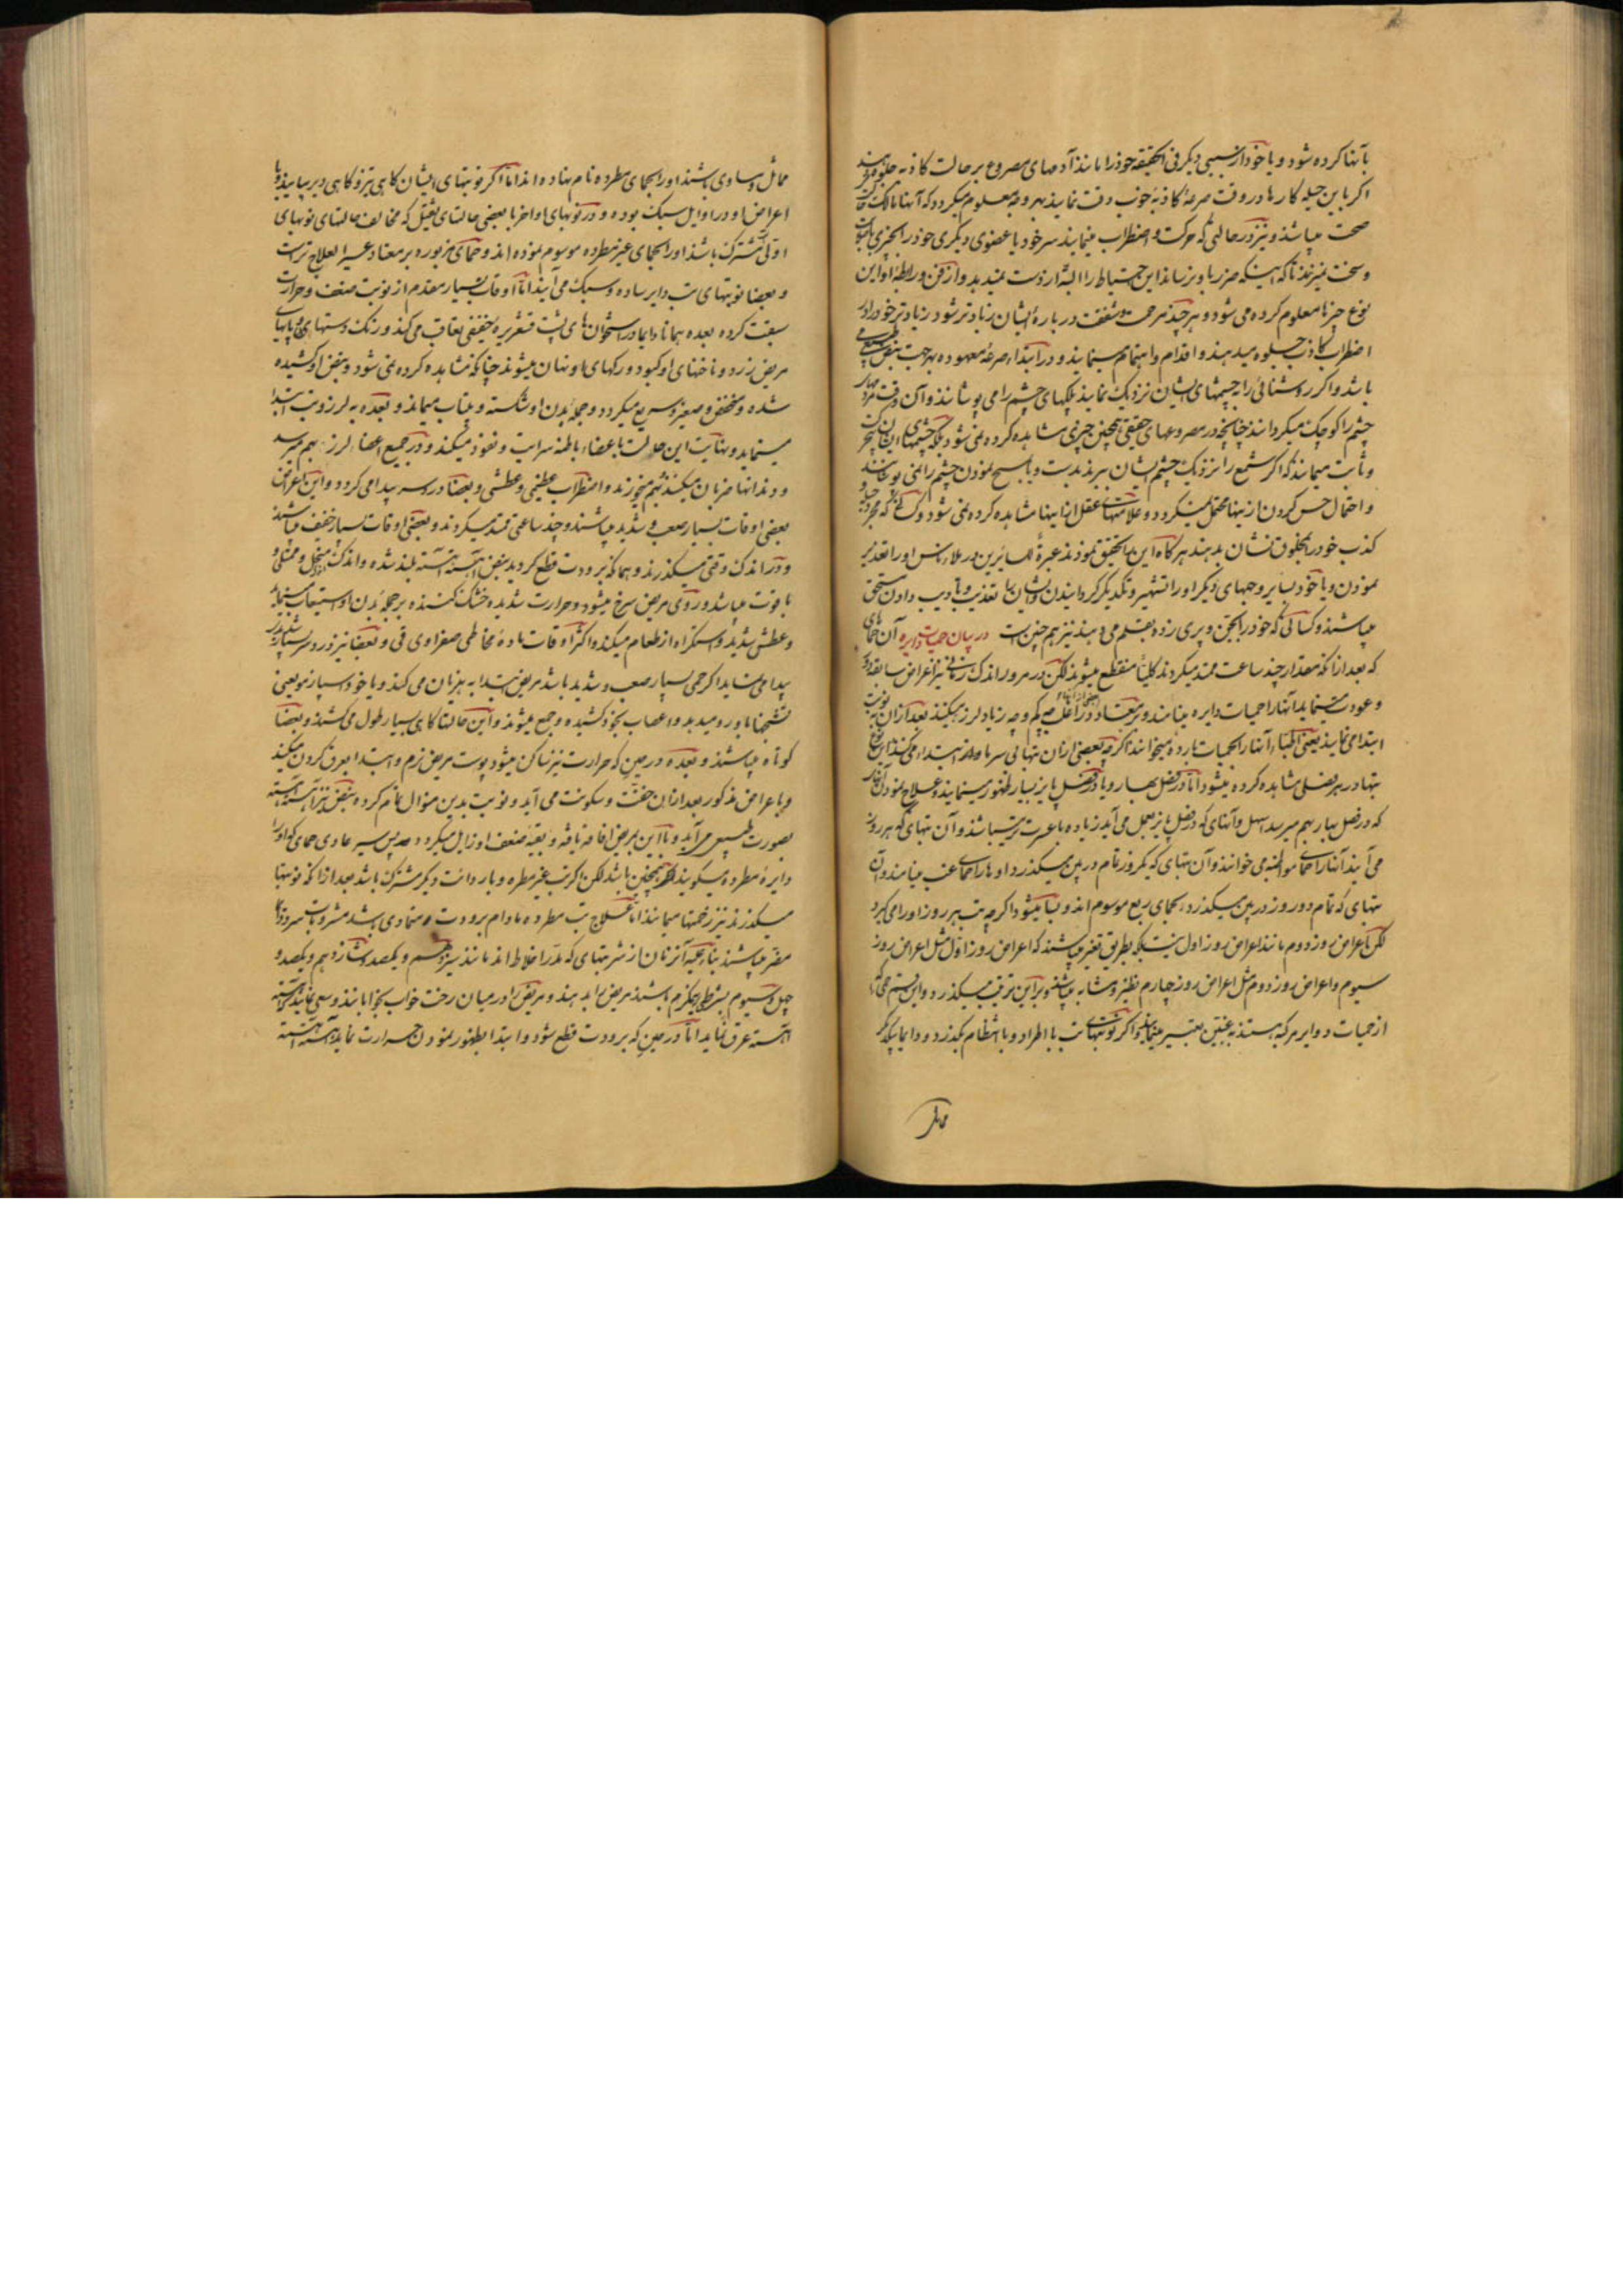 بآنها کرده شود و یا خود از سببی دیکر فی الحقیقه خود را مانند آدمهای مصروع بر حالت کاذبه جلوه
اکر باین حیله کارها در وقت صرعهٔ کاذبه خوب دقت نمایند بهر وجه معلوم میکردد که آنها مالک
صحت میباشند و نیز در حالتی که حرکت و اضطراب مینمایند سر خود یا عضوی دیکری خود را بچیزی
و سخت نمیزنند تا که اینکه ضرر باو برساند این احتیاط را البته از دست نمیدهد و از فن و رابطهٔ او این
نوع چیزها معلوم کرده می شود و هر چند مرحمت و شفقت در بارهٔ ایشان زیادتر شود زیادتر خود را در
اضطراب کاذب جلوه میدهند و اقدام و اهتمام مینمایند و در ابتداء صرعهٔ معهوده بهر جهت نبض
باشد و اکر روشنائی را به چشمهای ایشان نزدیک نمایند پلکهای چشم را می پوشانند و آن وقت
چشم را کوچک میکردانند چنانچه در مصروعهای حقیقی همچنین چیزی مشاهده کرده نمی شود بلکه چشمهای
و ثابت میماند که اکر شمع را نزدیک چشم ایشان ببرند بدست و یا مسح نمودن چشم را نمی پوشانند
و احتمال حس کردن از اینها محتمل نمیکردد و علامتهای عقل از اینها مشاهده کرده نمی شود و کسانی که
کذب خود را بخلوق نشان بدهند هر کاه این را تحقیق نمودند عبرةً للسایرین در ملاء ناس او را تعذیر
نمودن و یا خود بسایر وجههای دیکر او را تشهیر و تکدیر کردانیدن و ایشان را تعذیب و تادیب دادن مستحق
میباشند و کسانی که خود را بجن و پری زده بقلم می دهند نیز هم چنین است در بیان حمیات دایره آن حمای
که بعد از آنکه مقدار چند ساعت ممتد میکردند کلیاً منقطع میشوند لکن در مرور اندک زمانی نیز اعراض سابقه
و عودت مینماید آنها را حمیات دایره مینامند و بر معتاد در اغلب
ابتدا می نمایند یعنی اطباء آنها را حمیات بارده میخوانند اکر چه بعضی از آن تبها بی سرما
تبها در هر فصلی مشاهده کرده میشود اما در فصل بهار و یا در فصل پاییز بسیار ظهور مینمایند و علاج نمودن
که در فصل بهار بهم میرسد اسهل و آنهای که در فصل پاییز بعمل می آید زیاده با عسرت تر میباشد و آن تبهای که هر روز
می آیند آنها را حمای مواظبه می خوانند و آن تبهای که یکروز تمام در بین میکذرد او ها را حمای غب مینامند و آن
تبهای که تمام دو روز در بین میکذرد بحمای ربع موسوم اند و بسا میشود اکر چه تب هر روز او را می کیرد
لکن اعراض روز دوم مانند اعراض روز اول نیست بلکه بطریق تغیر میباشند که اعراض روز اول مثل اعراض روز
سیوم و اعراض روز دوم مثل اعراض روز چهارم نظیر و مشابه میباشند و بر این ترتیب میکذرد و این قسم
از حمیات دوایر مرکبه هستند به غبین تعبیر مینمایند و اکر نوبتهای تب با اطراد و با انتظام بکذرد و دائما یکدیکر
مماثل
مماثل و مساوی باشند او را بحمای مطرده نام نهاده اند اما اکر نوبتهای ایشان کاهی تیز و کاهی دیر بیایند و یا
اعراض او در اوایل سبک بوده و در نوبهای اواخر با بعضی حالتهای ثقیل که مخالف حالتهای نوبهای
اولی مشترک باشد او را بحمای غیر مطرده موسوم نموده اند و حمای مزبوره بر معتاد عسیر العلاج تر است
و بعضا نوبتهای تب دایر ساده و سبک می آیند اما اوقات بسیار مقدم از نوبت ضعف و حرارت
سبقت کرده بعده همانا دایما در استخوان های پشت قشعریره خفیفی تعاقب می کند و رنک دستهای و پایهای
مریض زرد و ناخنهای او کبود و رکهای او نهان میشوند چنانکه مشاهده کرده نمی شود و نبض او کشیده
شده و منخفض و صغیر و سریع میکردد و جملهٔ بدن او شکسته و بیتاب میماند و بعده به لرز و تب ابتدا
مینماید و نهایت این حالت باعضاء باطنه سرایت و نفوذ میکند و در جمیع اعضا لرز بهم میرسد
و دندانها ضربان میکنند بهم میخورند و اضطراب عظیمی و عطشی و بعضا درد سر پیدا می کردد و این اعراض
بعضی اوقات بسیار صعب و شدید میباشند و چند ساعتی ممتد میکردند و بعضی اوقات بسیار خفیف میباشند
و در اندک وقتی میکذرند و هما که برودت قطع کردید نبض آهسته آهسته بلند شده و اندک و ممتلی و
با قوت میباشد و روی مریض سرخ میشود و حرارت شدیده خشک کننده بر جملهٔ بدن او استیعاب مینماید
و عطش شدید و استکراه از طعام میکند و اکثر اوقات مادهٔ مخاطی صفراوی قی و بعضا نیز درد سر بسیار شدید
پیدا می نماید اکر حمی بسیار صعب و شدید باشد مریض ابتدا به هزیان می کند و یا خود بسیار نوعین
تشنجها باو رو میدهد و اعصاب بخود کشیده و جمع میشوند و این حالتها کاهی بسیار طول می کشند و بعضا
کوتاه میباشند و بعده در حین که حرارت نیز ساکن میشود پوست مریض نرم و ابتدا بعرق کردن میکند
و با عراض مذکور بعد از آن خفت و سکونت می آید و نوبت بدین منوال تمام کرده نبض نیز آهسته آهسته
بصورت طبیعی در آید و با این مریض افاقه یافته و بقیهٔ ضعف او زایل میکردد پس سیر عادی حمای که او را
دایرهٔ مطرده میکویند همچنین باشد لکن اکر تب غیر مطرده و با ردائت دیکر مشترک باشد بعد از آنکه نوبتها
میکذرند نیز زخمها میمانند اما علاج تب مطرده مادام برودت متمادی باشد مشروبات سرد
مضر میباشند بناء علیه آنزمان از شربتهای که مدر اخلاط اند مانند سیزدهم و یکصد و شازدهم و یکصد و
چهل و سیوم بشرطی که نیم کرم باشند مریض را بدهند و مریض را در میان رخت خواب بخوابانند و سعی نمایند که آهسته
آهسته عرق نماید اما در حین که برودت قطع شود و ابتدا بظهور نمودن حرارت نماید آهسته آهسته